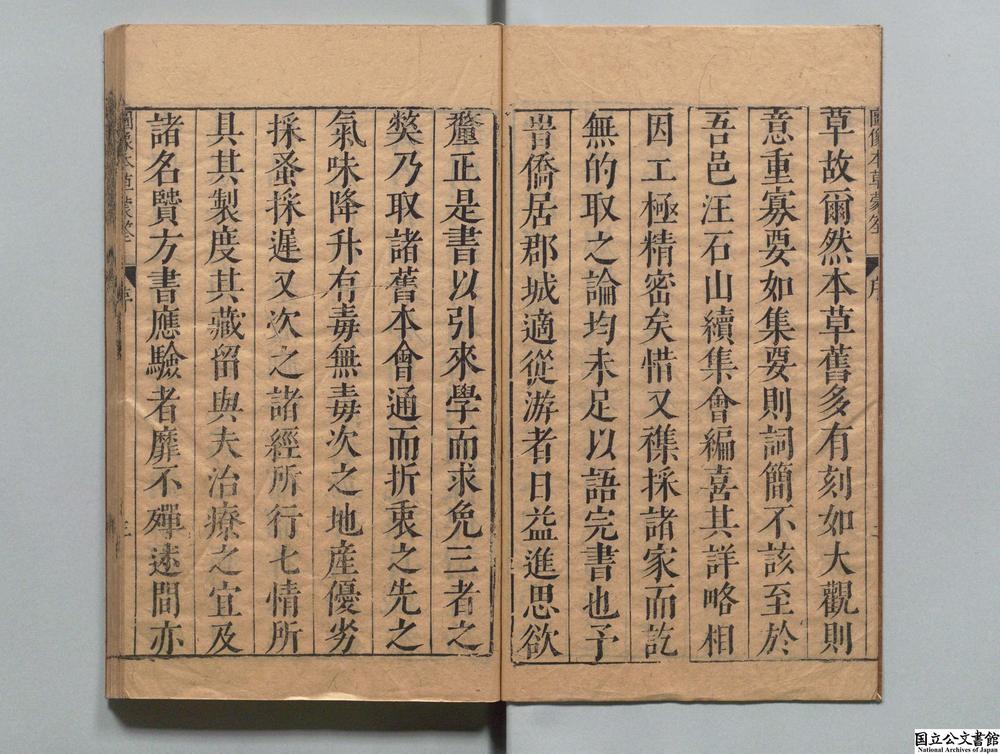 圖像本草蒙筌 序 二
草故爾然本草舊多有刻如大觀則
意重寡要如集要則詞簡不該至於
吾邑汪石山續集會編喜其詳略相
因工極精密矣惜又襍採諸家而訖
無的取之論均未足以語完書也予
昔僑居郡城適從游者日益進思欲
釐正是書以引來學而求免三者之
獘乃取諸舊本會通而折衷之先之
氣味降升有毒無毒次之地産優劣
採蚤採遲又次之諸經所行七情所
具其製度其藏留與夫治療之宜及
諸名賢方書應驗者靡不殫述間亦
圖像本草蒙筌 序 三
国立公文書館
National Archives of Japan